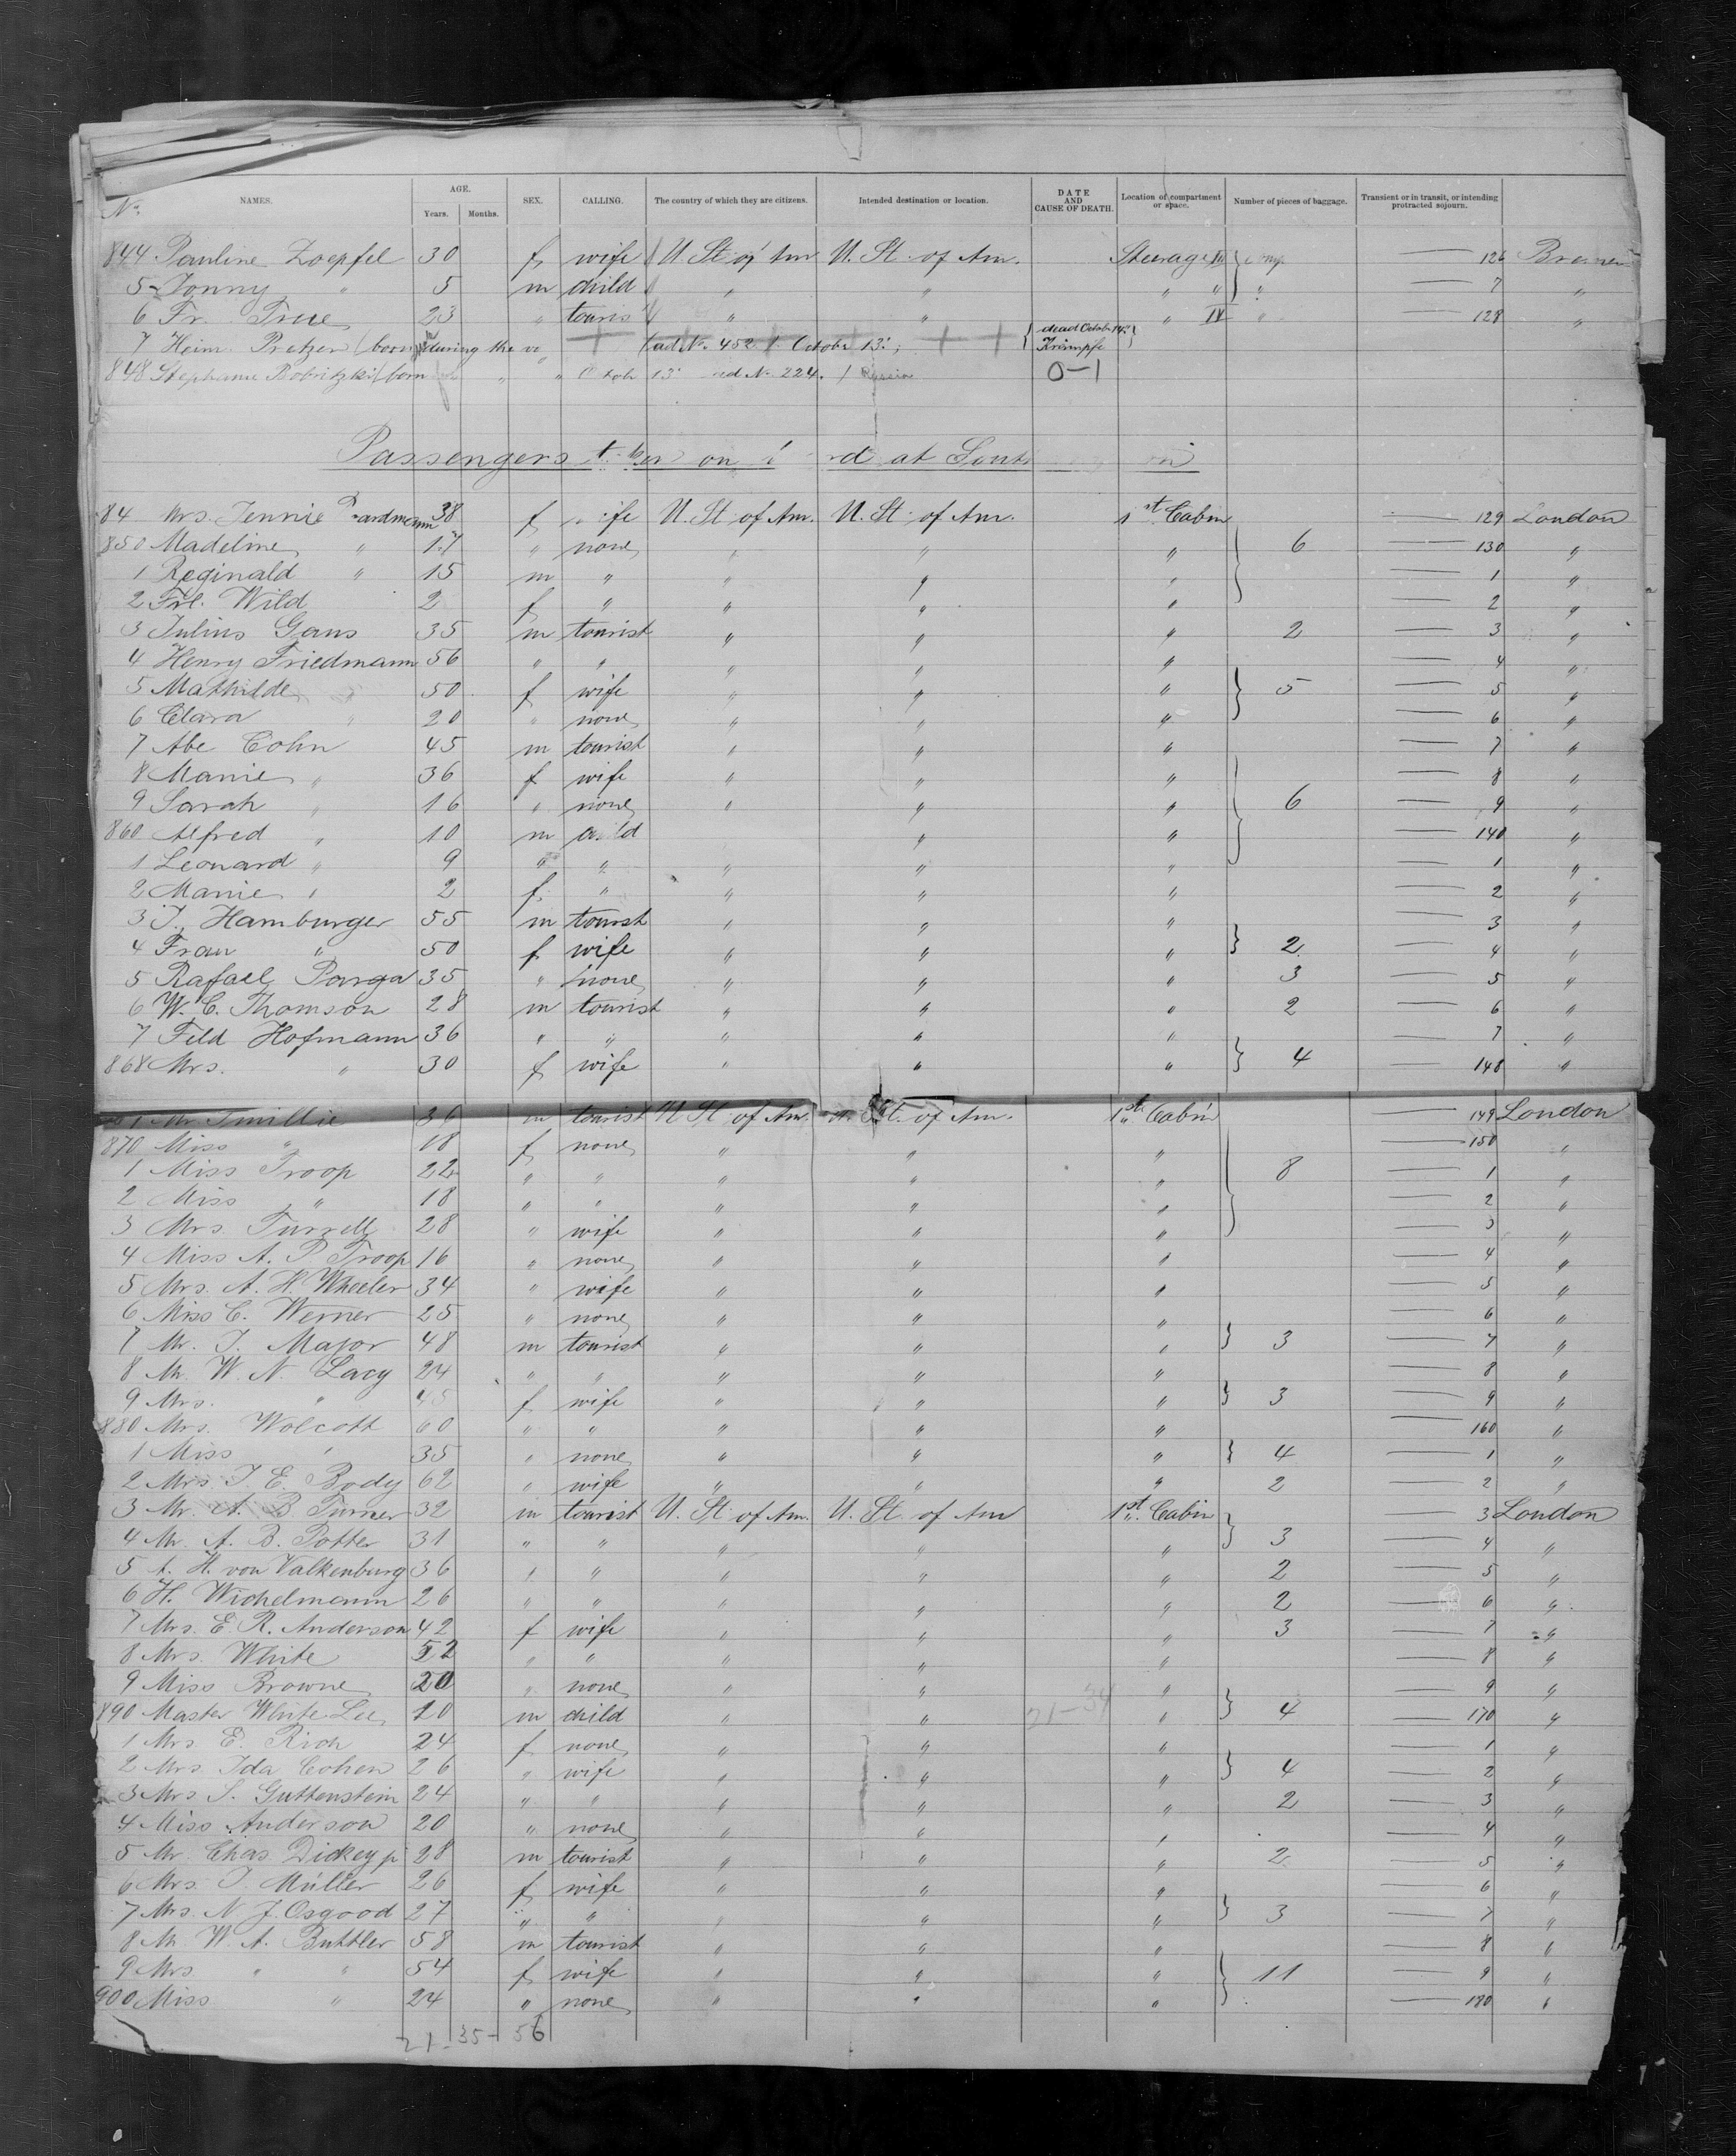 No. NAMES. AGE. Years. Months. SEX. CALLING. The country of which they are citizens. Intended destination or location. DATE AND CAUSE OF DEATH. Location of compartment or space. Number of pieces of baggage. Transient or in transit, or intending protracted sojourn.
844 Pauline Zoepfel 30 f wife U. St. of Am U. St. of Am. Steerage 126 Bremen
5 Tonny " 5 m child " " " " " 7 "
6 Fr. True 23 " touris " " " IV " 128 "
7 Heinr. Pretzer (born during the ad No. 452. October 13. dead October 14. Krämpfe
848 Stephanie Bobritzki (born " " 13. ad No. 224. Russia 0-1
Passengers on at
84 Mrs. Jennie 38 f U. St. of Am. U. St. of Am. 1st Cabin 129 London
850 Madeline " 17 " none " " " 6 130 "
1 Reginald " 15 m " " " " 1 "
2 Frl. Wild 2 f " " " " 2 "
3 Julius Gans 35 m tourist " " " 2 3 "
4 Henry Friedmann 56 " " " " " 4 "
5 Mathilde " 50 f wife " " " 5 5 "
6 Clara " 20 " none " " " 6 "
7 Abe Cohn 45 m tourist " " " 7 "
8 Manie " 36 f wife " " " 8 "
9 Sarah " 16 " none " " " 6 9 "
860 Alfred " 10 m " " 140 "
1 Leonard " 9 " " " " " 1 "
2 Manie " 2 f " " " " 2 "
3 J. Hamburger 55 m tourist " " " 3 "
4 Frau " 50 f wife " " " 2 4 "
5 Rafael Parga 35 " none " " " 3 5 "
6 W. C. Thomson 28 m tourist " " " 2 6 "
7 Feld Hofmann 36 " " " " " 7 "
868 Mrs. " 30 f wife " " " 4 148 "
Mr. Smillie 36 m tourist U. St. of Am. St. of Am. 1st Cabin 149 London
870 Miss " 18 f none " " " 150 "
1 Miss Troop 22 " " " " " 8 1 "
2 Miss " 18 " " " " " 2 "
3 Mrs. Turrell 28 " wife " " " 3 "
4 Miss A. P. Troop 16 " none " " " 4 "
5 Mrs. A. H. Wheeler 34 " wife " " " 5 "
6 Miss C. Werner 25 " none " " " 6 "
7 Mr. J. Major 48 m tourist " " " 3 7 "
8 Mr. W. N. Lacy 24 " " " " " 8 "
9 Mrs. " 45 f wife " " " 3 9 "
880 Mrs. Wolcott 60 " " " " " 160 "
1 Miss " 35 " none " " " 4 1 "
2 Mrs. J. E. Body 62 " wife " " " 2 2 "
3 Mr. A. B. Turner 32 m tourist U. St. of Am. U. St. of Am 1st Cabin 3 London
4 Mr. A. B. Potter 31 " " " " " 3 4 "
5 A. H. von Valkenburg 36 " " " " " 2 5 "
6 H. Wichelmann 26 " " " " " 2 6 "
7 Mrs. E. R. Anderson 42 f wife " " " 3 7 "
8 Mrs. White 52 " " " " " 8 "
9 Miss Browne 20 " none " " " 9 "
890 Master White Lee 10 m child " " 21-34 " 4 170 "
1 Mrs. E. Rich 24 f none " " " 1 "
2 Mrs. Ida Cohen 26 " wife " " " 4 2 "
3 Mrs. S. Guttenstein 24 " " " " " 2 3 "
4 Miss Anderson 20 " none " " " 4 "
5 Mr. Chas. Dickey 28 m tourist " " " 2 5 "
6 Mrs. J. Müller 26 f wife " " " 6 "
7 Mrs. N. J. Osgood 27 " " " " " 3 7 "
8 Mr. W. A. Buttler 58 m tourist " " " 8 "
9 Mrs. " " 54 f wife " " " 11 9 "
900 Miss " 24 " none " " " 180 "
21-35-56